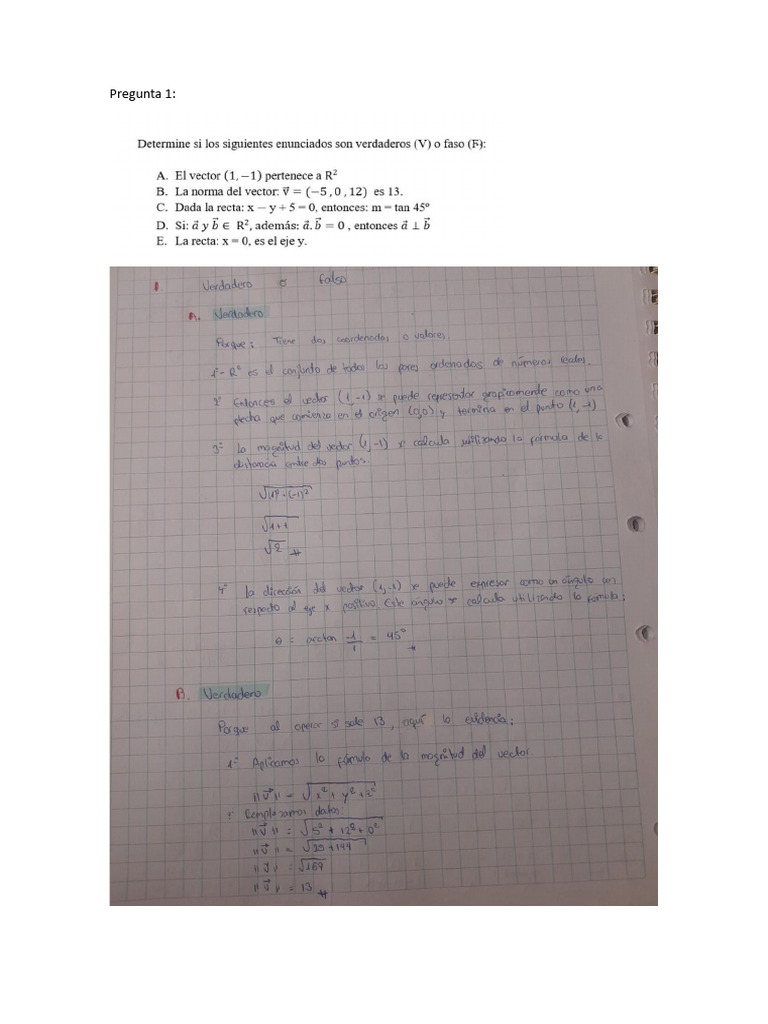 Pregunta 1:
Determine si los siguientes enunciados son verdaderos (V) o faso (F):
A. El vector (1, −1) pertenece a R²
B. La norma del vector: v⃗ = (−5 , 0 , 12) es 13.
C. Dada la recta: x − y + 5 = 0, entonces: m = tan 45º
D. Si: a⃗ y b⃗ ∈ R², además: a⃗. b⃗ = 0 , entonces a⃗ ⊥ b⃗
E. La recta: x = 0, es el eje y.
1. Verdadero o Falso
A. Verdadero
Porque: Tiene dos coordenadas o valores
1º- R² es el conjunto de todos los pares ordenados de números reales.
2º Entonces el vector (1,-1) se puede representar graficamente como una
flecha que comienza en el origen (0,0) y termina en el punto (1,-1)
3º La magnitud del vector (1,-1) se calcula utilizando la fórmula de la
distancia entre dos puntos:
√(1)²-(-1)²
√1+1
√2
4º La dirección del vector (1,-1) se puede expresar como un ángulo
respecto al eje x positivo Este ángulo se calcula utilizando la fórmula:
θ = arctan -1/1 = 45°
B. Verdadero
Porque al operar si sale 13, aquí la evidencia:
1º Aplicamos la fórmula de la magnitud del vector
||v⃗|| = √x² + y² + z²
Remplazamos datos
||v⃗|| = √5² + 12² + 0²
||v⃗|| = √25 + 144
||v⃗|| = √169
||v⃗|| = 13